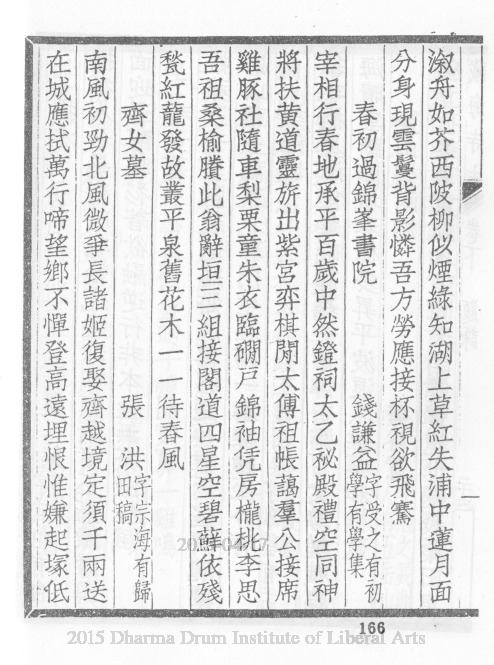 溆舟如芥西陂柳似煙綠知湖上草紅失浦中蓮月面
分身現雲鬟背影憐吾方勞應接杯視欲飛騫
春初過錦峯書院 錢謙益字受之有初學有學集
宰相行春地承平百歲中然鐙祠太乙祕殿禮空同神
將扶黃道靈旂出紫宮弈棋閒太傅祖帳謁羣公接席
雞豚社隨車梨栗童朱衣臨磵戶錦袖凭房櫳桃李思
吾祖桑榆賸此翁辭垣三組接閣道四星空碧蘚依殘
甃紅蘢發故叢平泉舊花木一一待春風
齊女墓 張洪字宗海有歸田稿
南風初勁北風微爭長諸姬復娶齊越境定須千兩送
在城應拭萬行啼望鄉不憚登高遠埋恨惟嫌起塚低
166
2015 Dharma Drum Institute of Liberal Arts